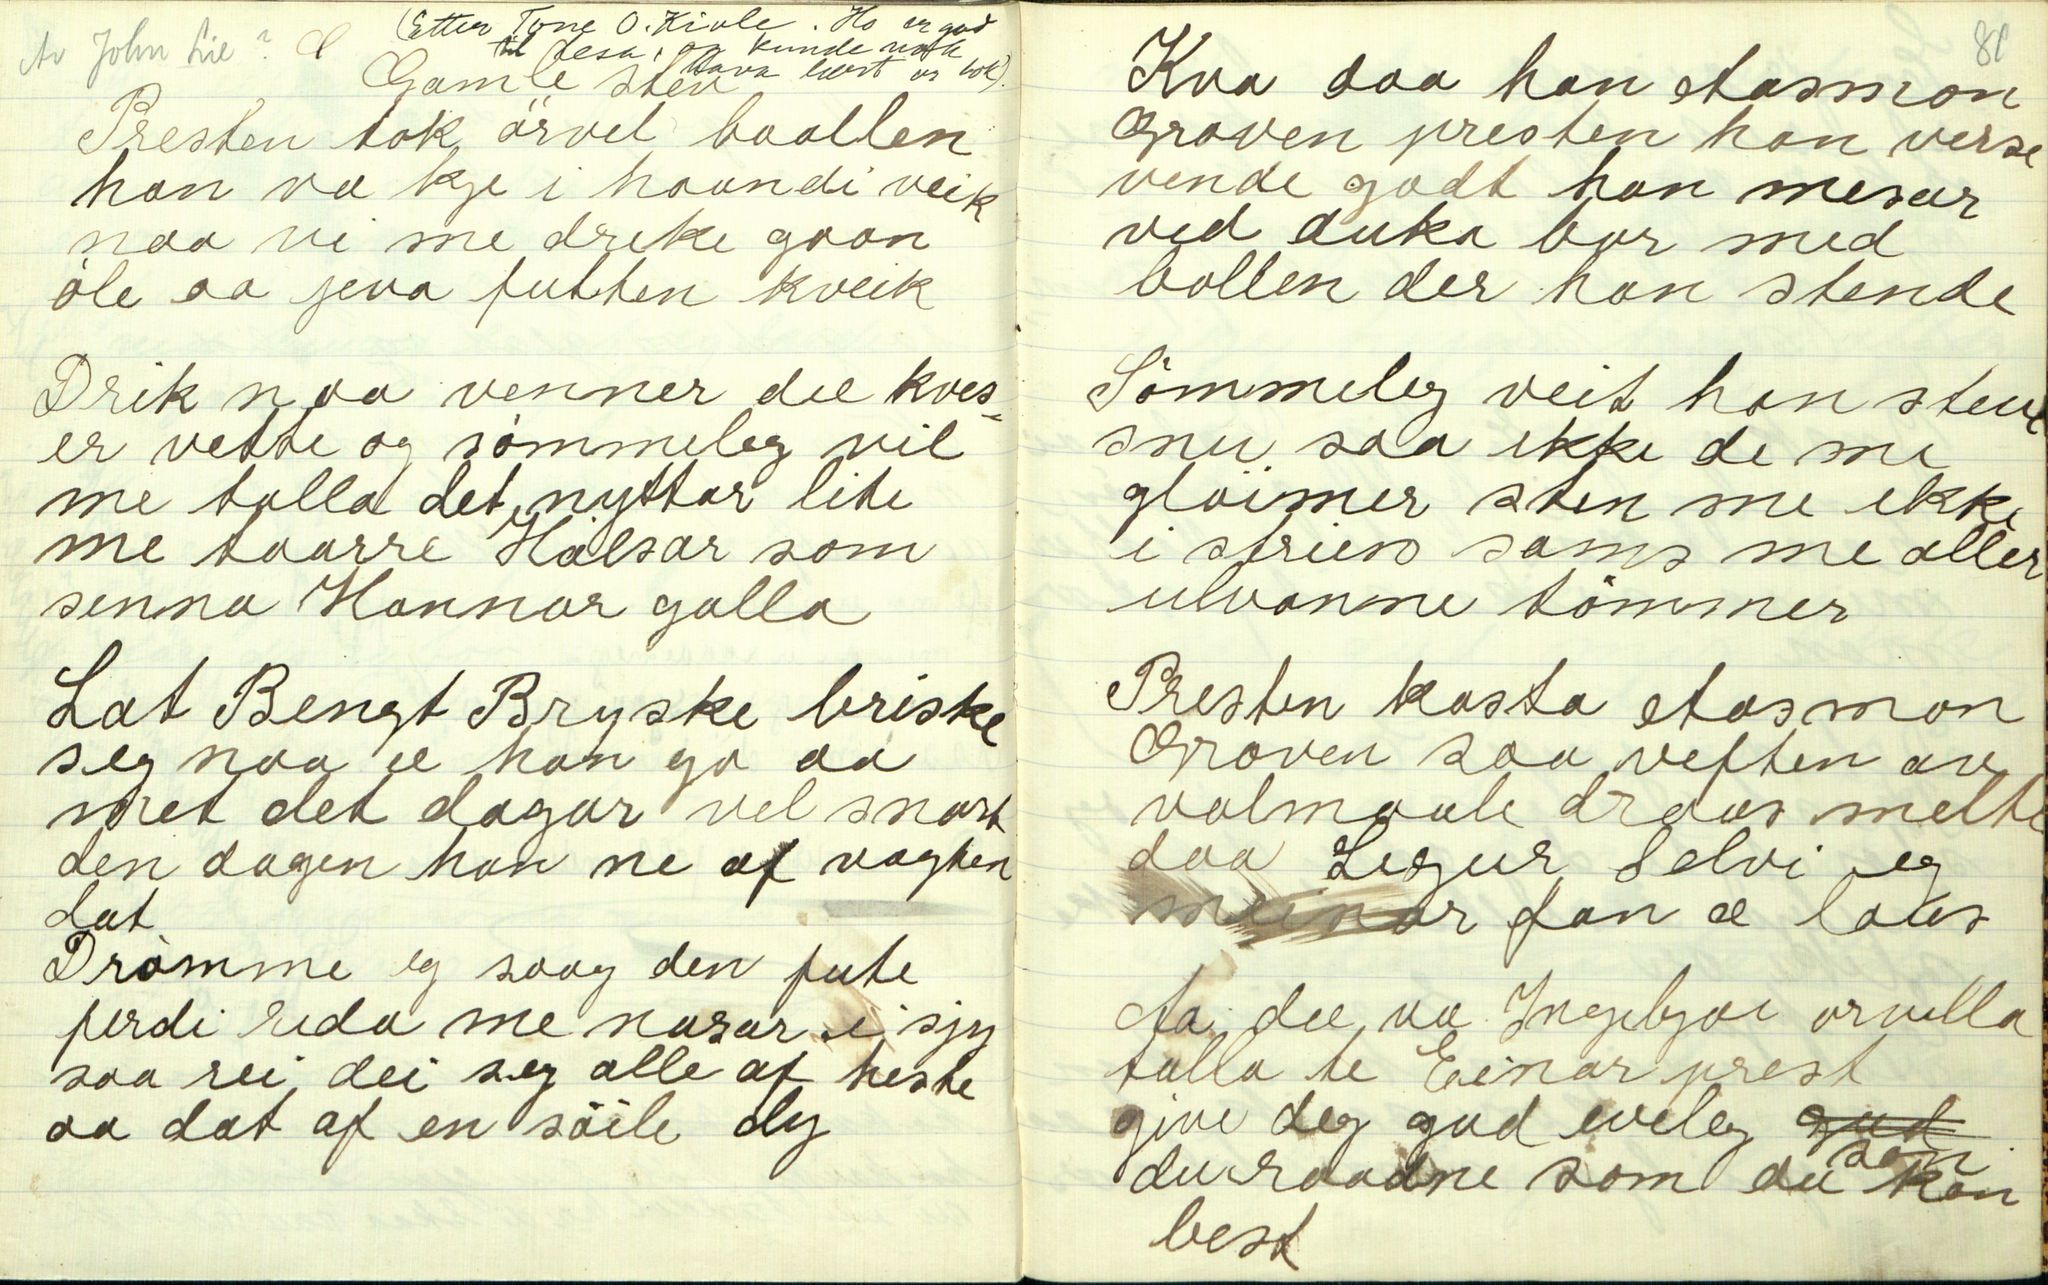 Av John Lie?
(Etter Tone O. Kivle. Ho er god
til lesa, og kunde nok
hava lært or bok).
Gamle stev
Presten tok örvel baallen
han va kje i haandi veik
naa vi me dreke gaan
öle aa jeva futten kveik
Drik naa venner dæ kves-
er vette og sømmeleg vil
me talla det nyttar lite
me taarre Halsar som
senna Hannar galla
Lat Bengt Bryske briske
seg naa æ han ga aa
met det dagar vel snart
den dagen han ne af vagten
dat
Drömme eg saag den fute
ferdi rida me nasar i sjy
saa rei dei seg alle af heste
aa dat af en söile dy
81
Kva daa han Aasmon
Groven presten han verse
vende godt han mesar
ved duka bor med
bollen der han stende
Sömmeleg veit han steve
snu saa ikke de me
glöimer sten me ikke
i strien sams me aller
ulvanne tömmer
Presten kasta Aasmon
Groven saa veften av
valmaale draas melte
daa Legur Selvi eg
meinar fan æ laus
Ja dæ va Ingebjør orvella
talla te Einar prest
give deg gud eveleg gud
san
du raadne som du kan
best